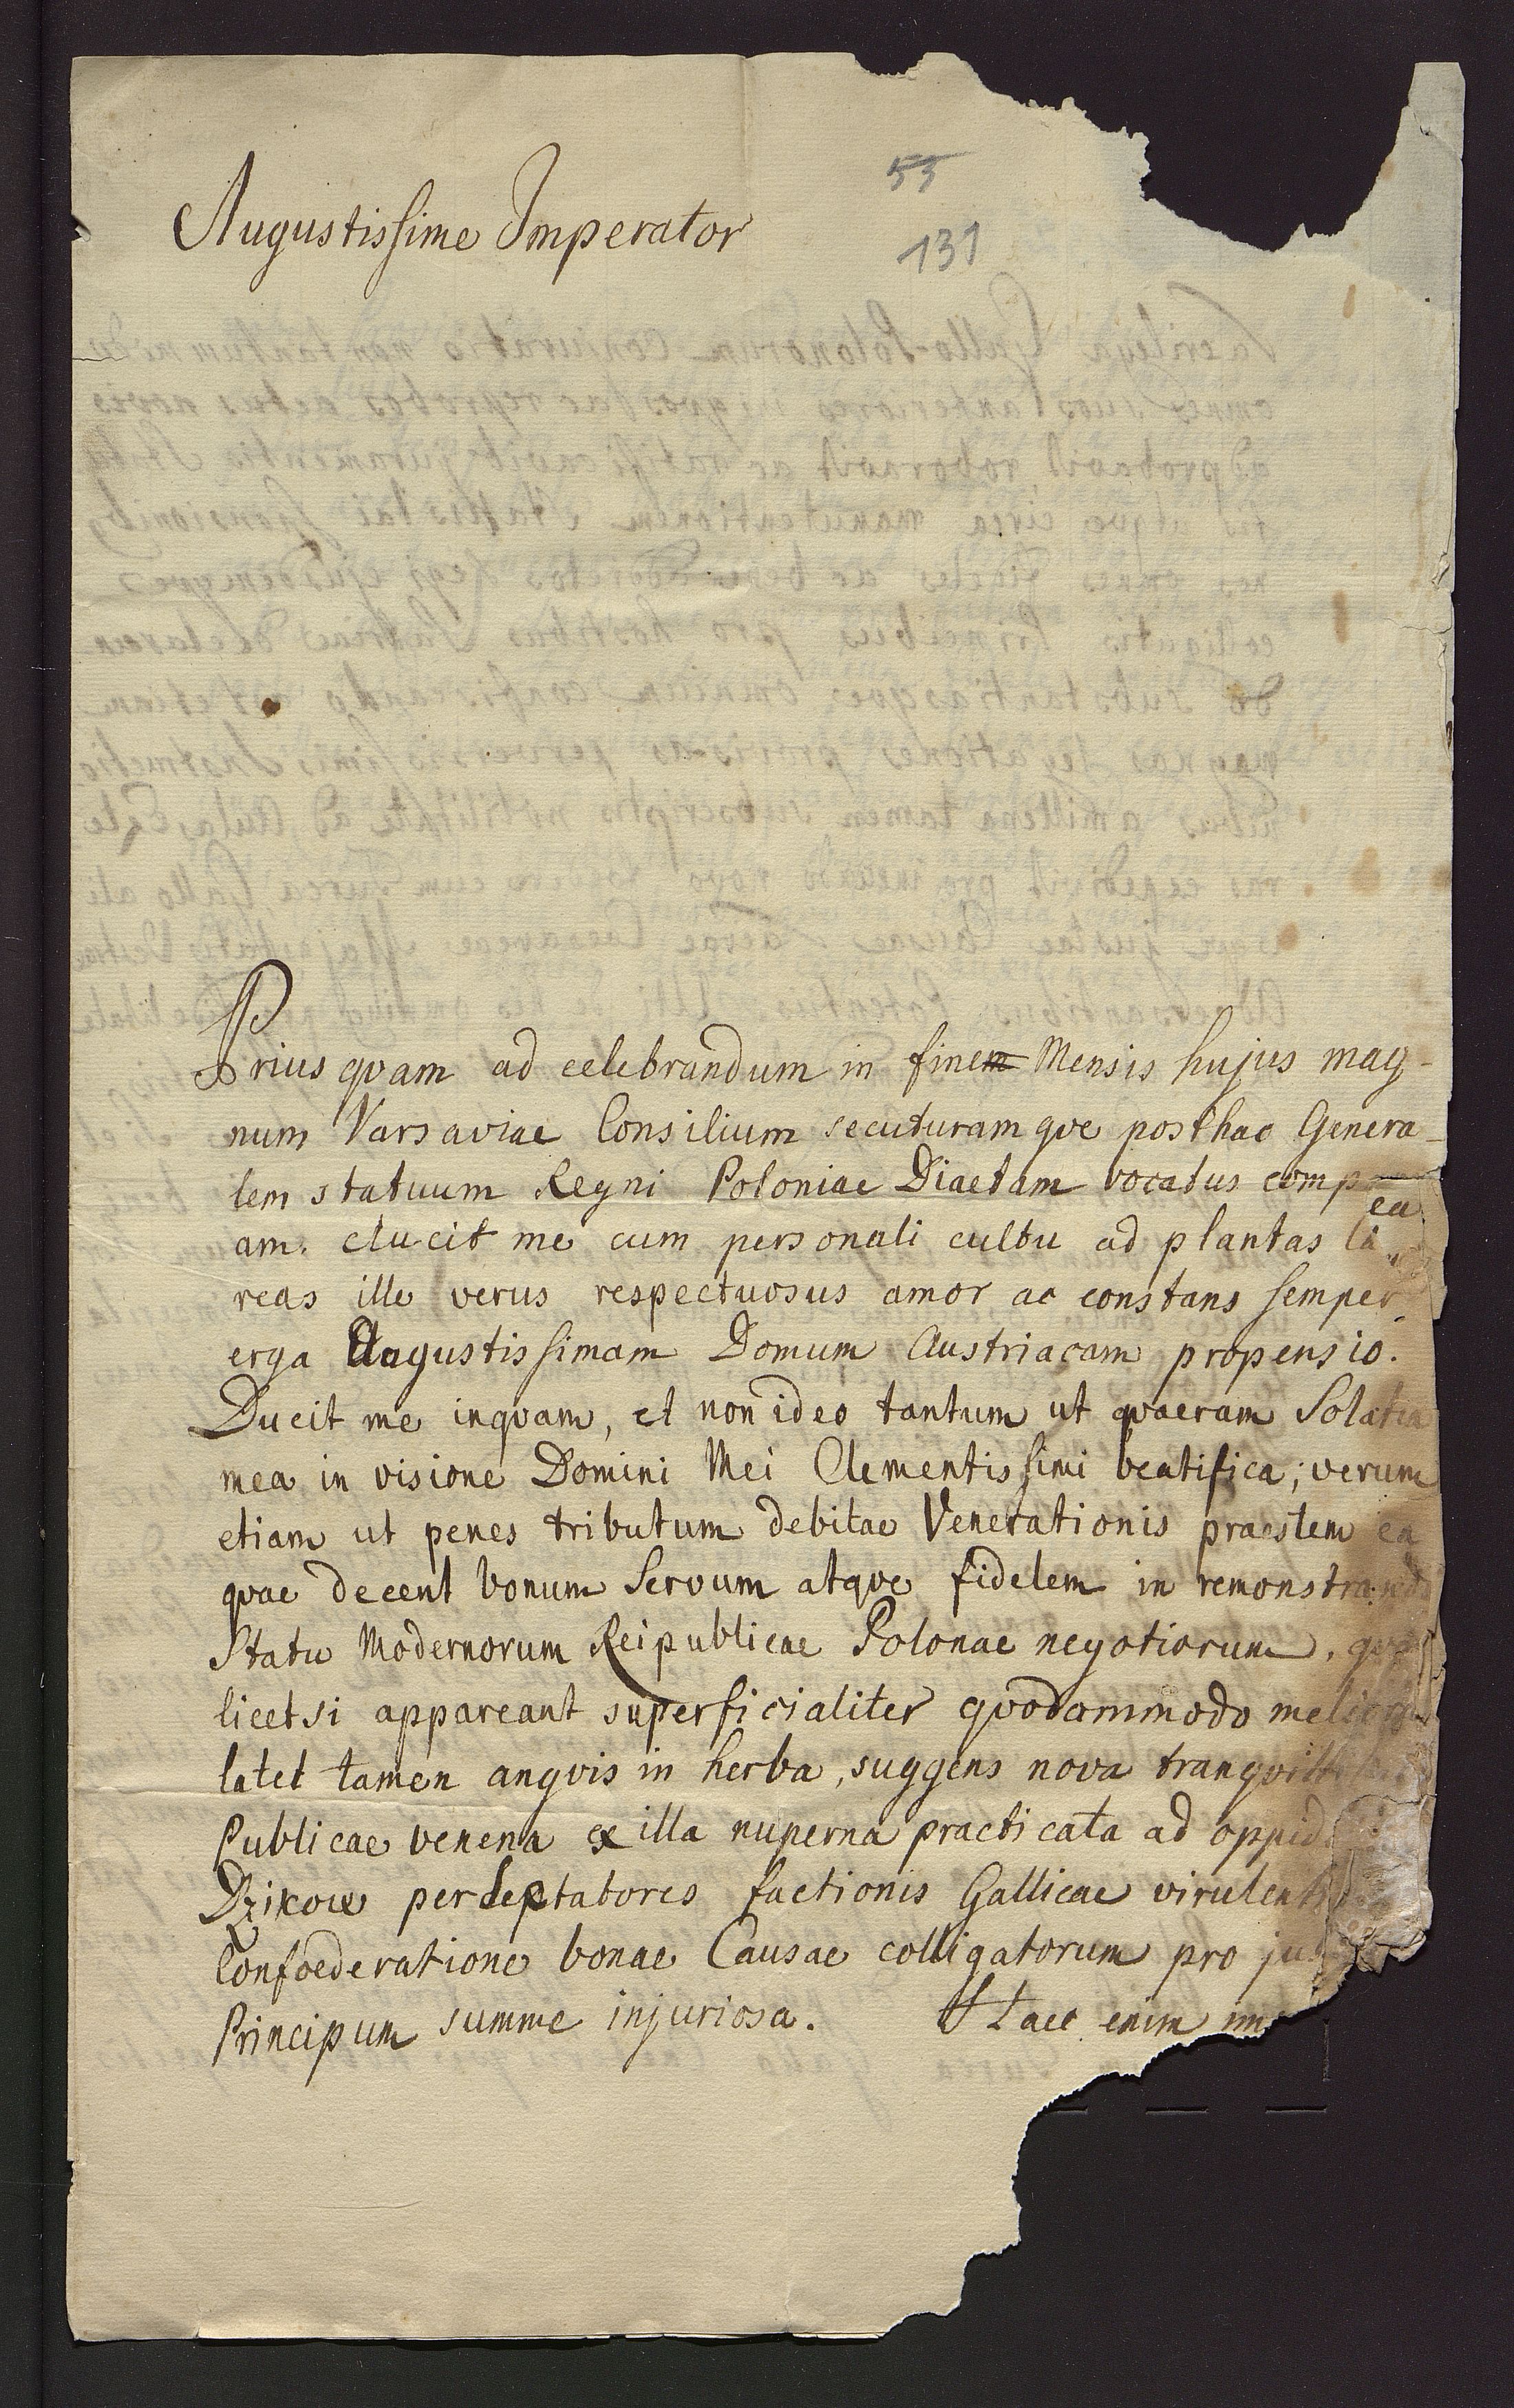 53
131
Augustissime Imperator
Priusqvam ad celebrandum in finem Mensis hujus mag-
num Varsaviae Consilium secuturamqve posthac Genera-
lem statuum Regni Poloniae Diaetam vocatus comp
ea
am. ducit me cum personali cultu ad plantas
reas ille verus respectuosus amor ac constans semper
erga Augustissimam Domum Austriacam propensio.
Ducit me inqvam, et non ideo tantum ut qvaeram Solatia
mea in visione Domini Mei Clementissimi beatifica; verum
etiam ut penes tributum debitae Venerationis praestem ea
qvae decent bonum Servum atqve fidelem in remonstrando
Statu Modernorum Reipublicae Polonae negotiorum, qvae
licetsi appareant superficialiter qvodammodo meliora
latet tamen angvis in herba, suggens nova tranqvillita
Publicae venena ex illa nuperna practicata ad oppid
Dzikow per Septatores factionis Gallicae virulent
Confoederatione bonae Causae colligatorum pro jus
Principum summe injuriosa. Haec enim im